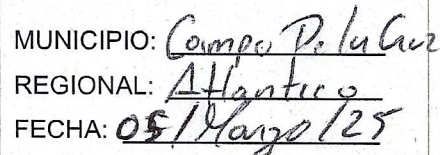 MUNICIPIO: Campo De la Cruz
REGIONAL: Atlantico
FECHA: 05/Marzo/25